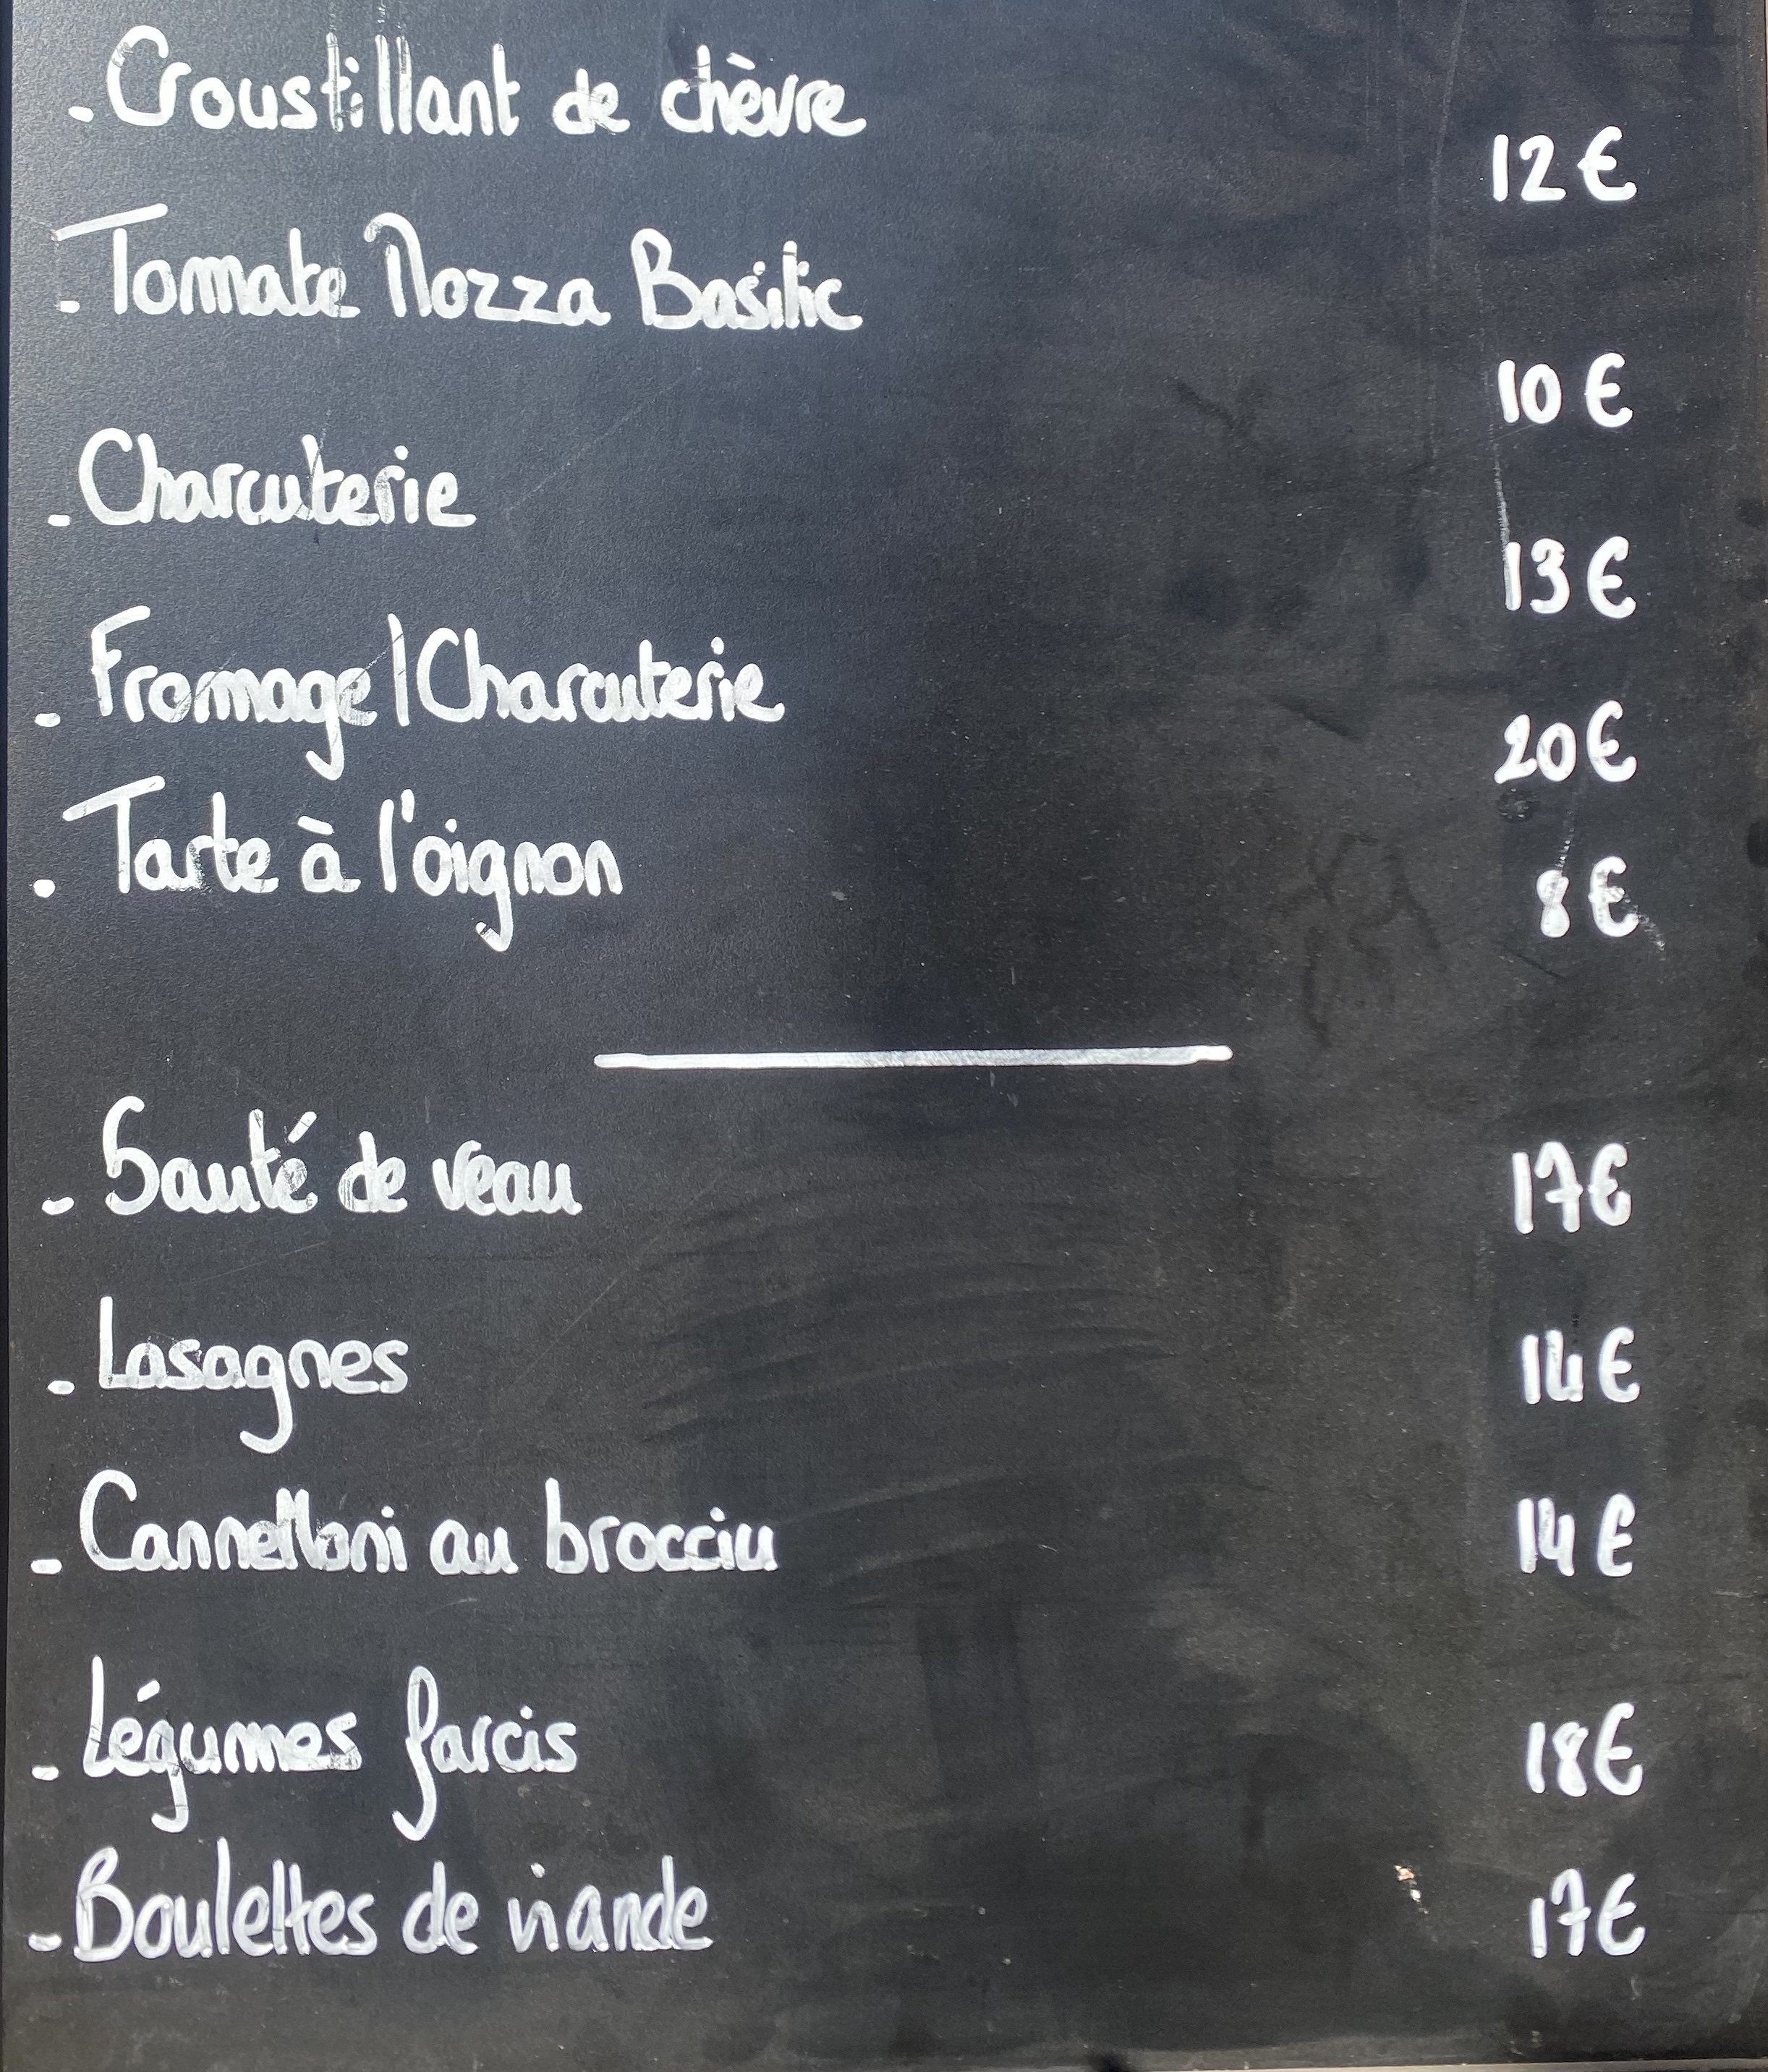 . Croustillant de chèvre 12€
. Tomate Mozza Basilic 10€
. Charcuterie 13€
. Fromage/Charcuterie 20€
. Tarte à l'oignon 8€
- Sauté de veau 17€
- Lasagnes 14€
- Cannelloni au brocciu 14€
- Légumes farcis 18€
- Boulettes de viande 17€